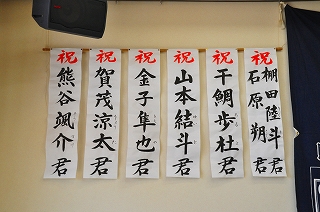 祝 棚田陸斗君 石原朔君
祝 干鯛歩杜君
祝 山本結斗君
祝 金子隼也君
祝 賀茂涼太君
祝 熊谷颯介君